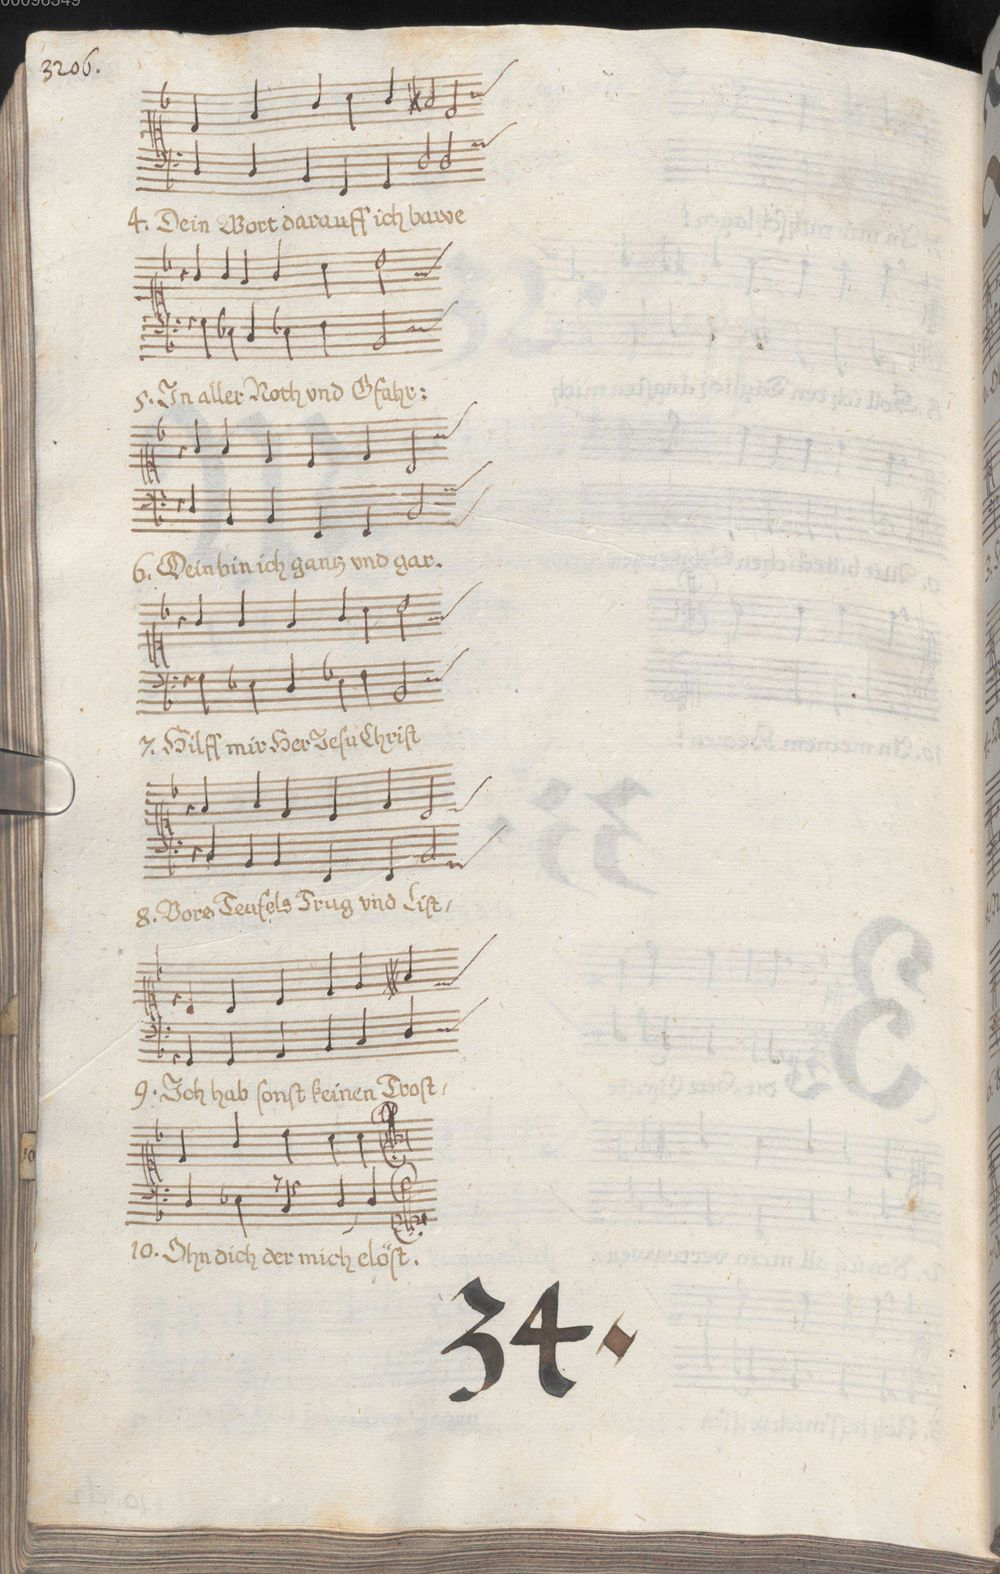 3206.
4. Dein Wort darauff ich bawe
5. In aller Noth vnd Gfahr:
6. Dein bin ich gantz vnd gar.
7. Hilff mir Her Jesu Christ
8. Vors Teufels Trug vnd List/
9. Ich hab sonst keinen Trost/
10. Ohn dich der mich elöst.
34.